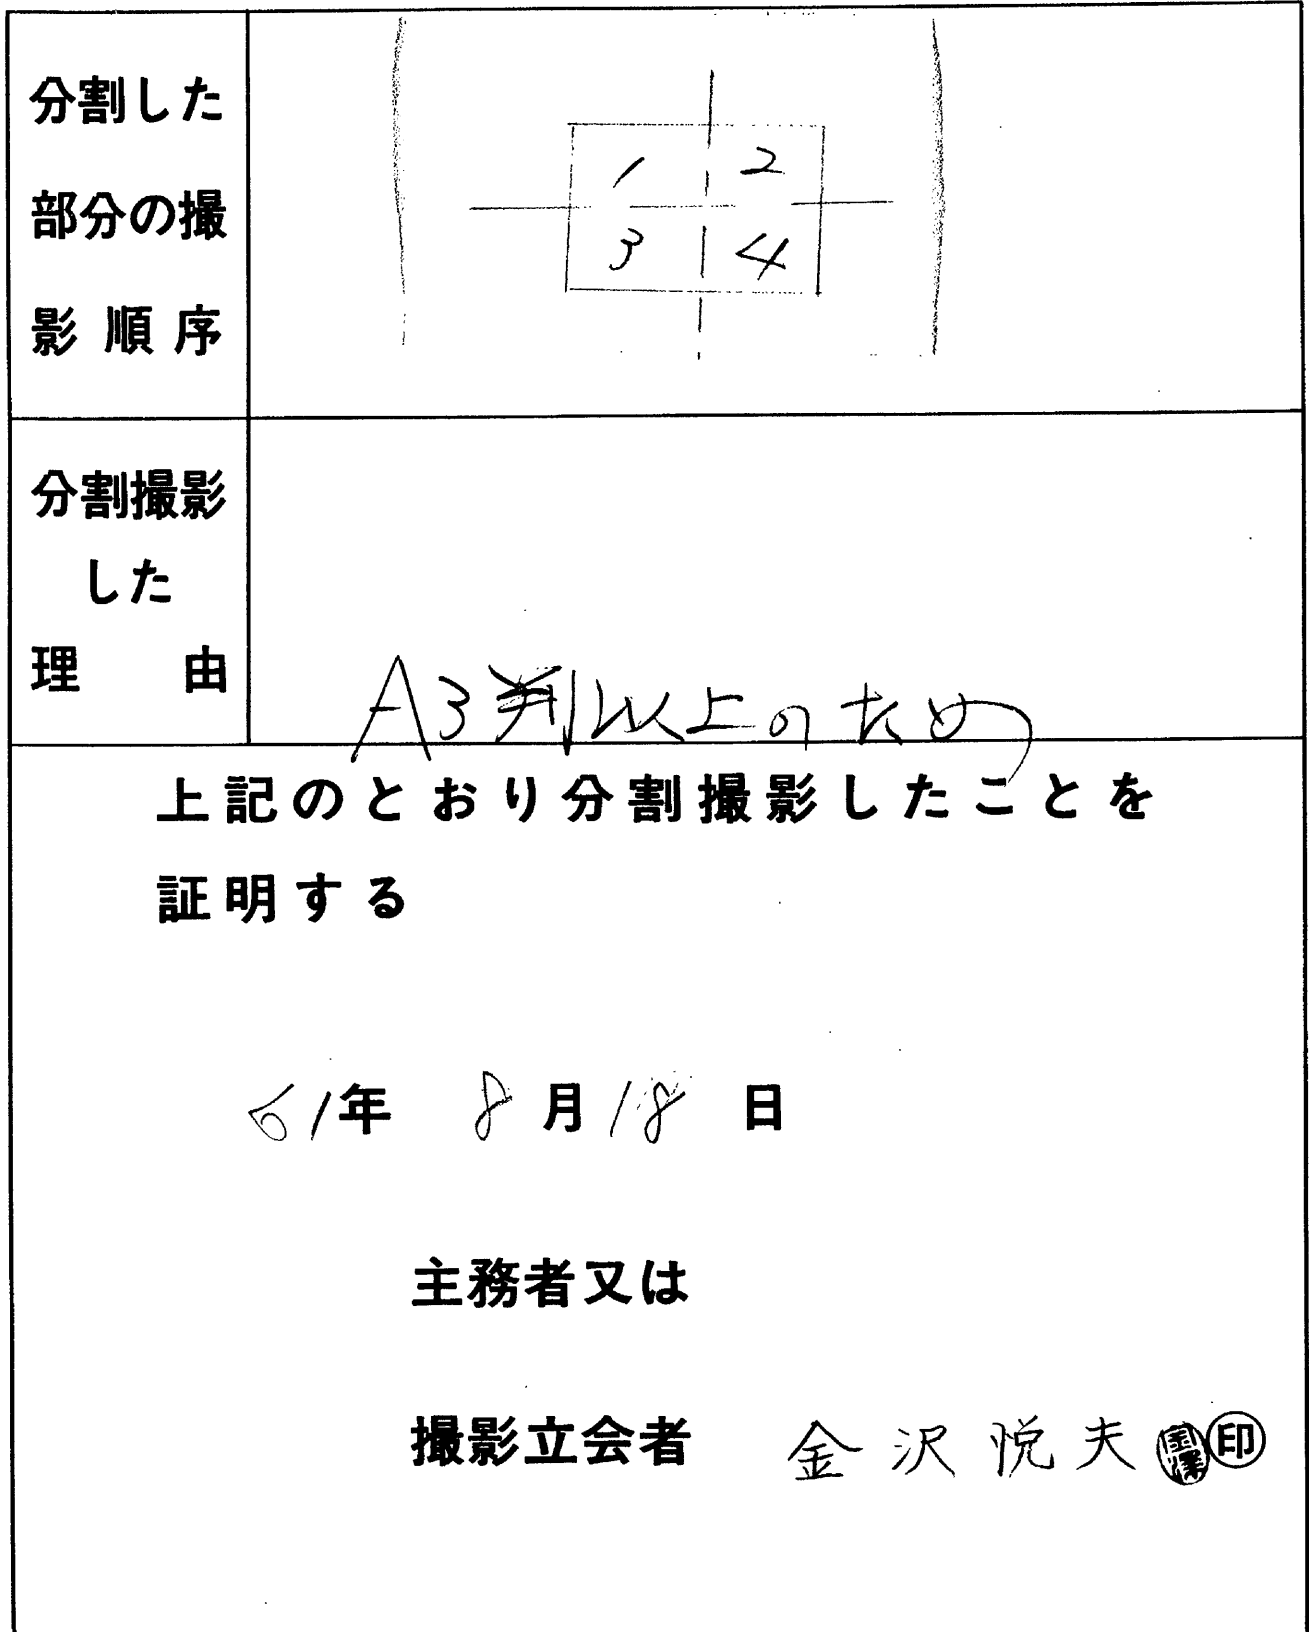 分割した
部分の撮
影順序
1 2
3 4
分割撮影
した
理由
A3判以上のため
上記のとおり分割撮影したことを
証明する
61年 8月18日
主務者又は
撮影立会者 金沢悦夫 金澤 印